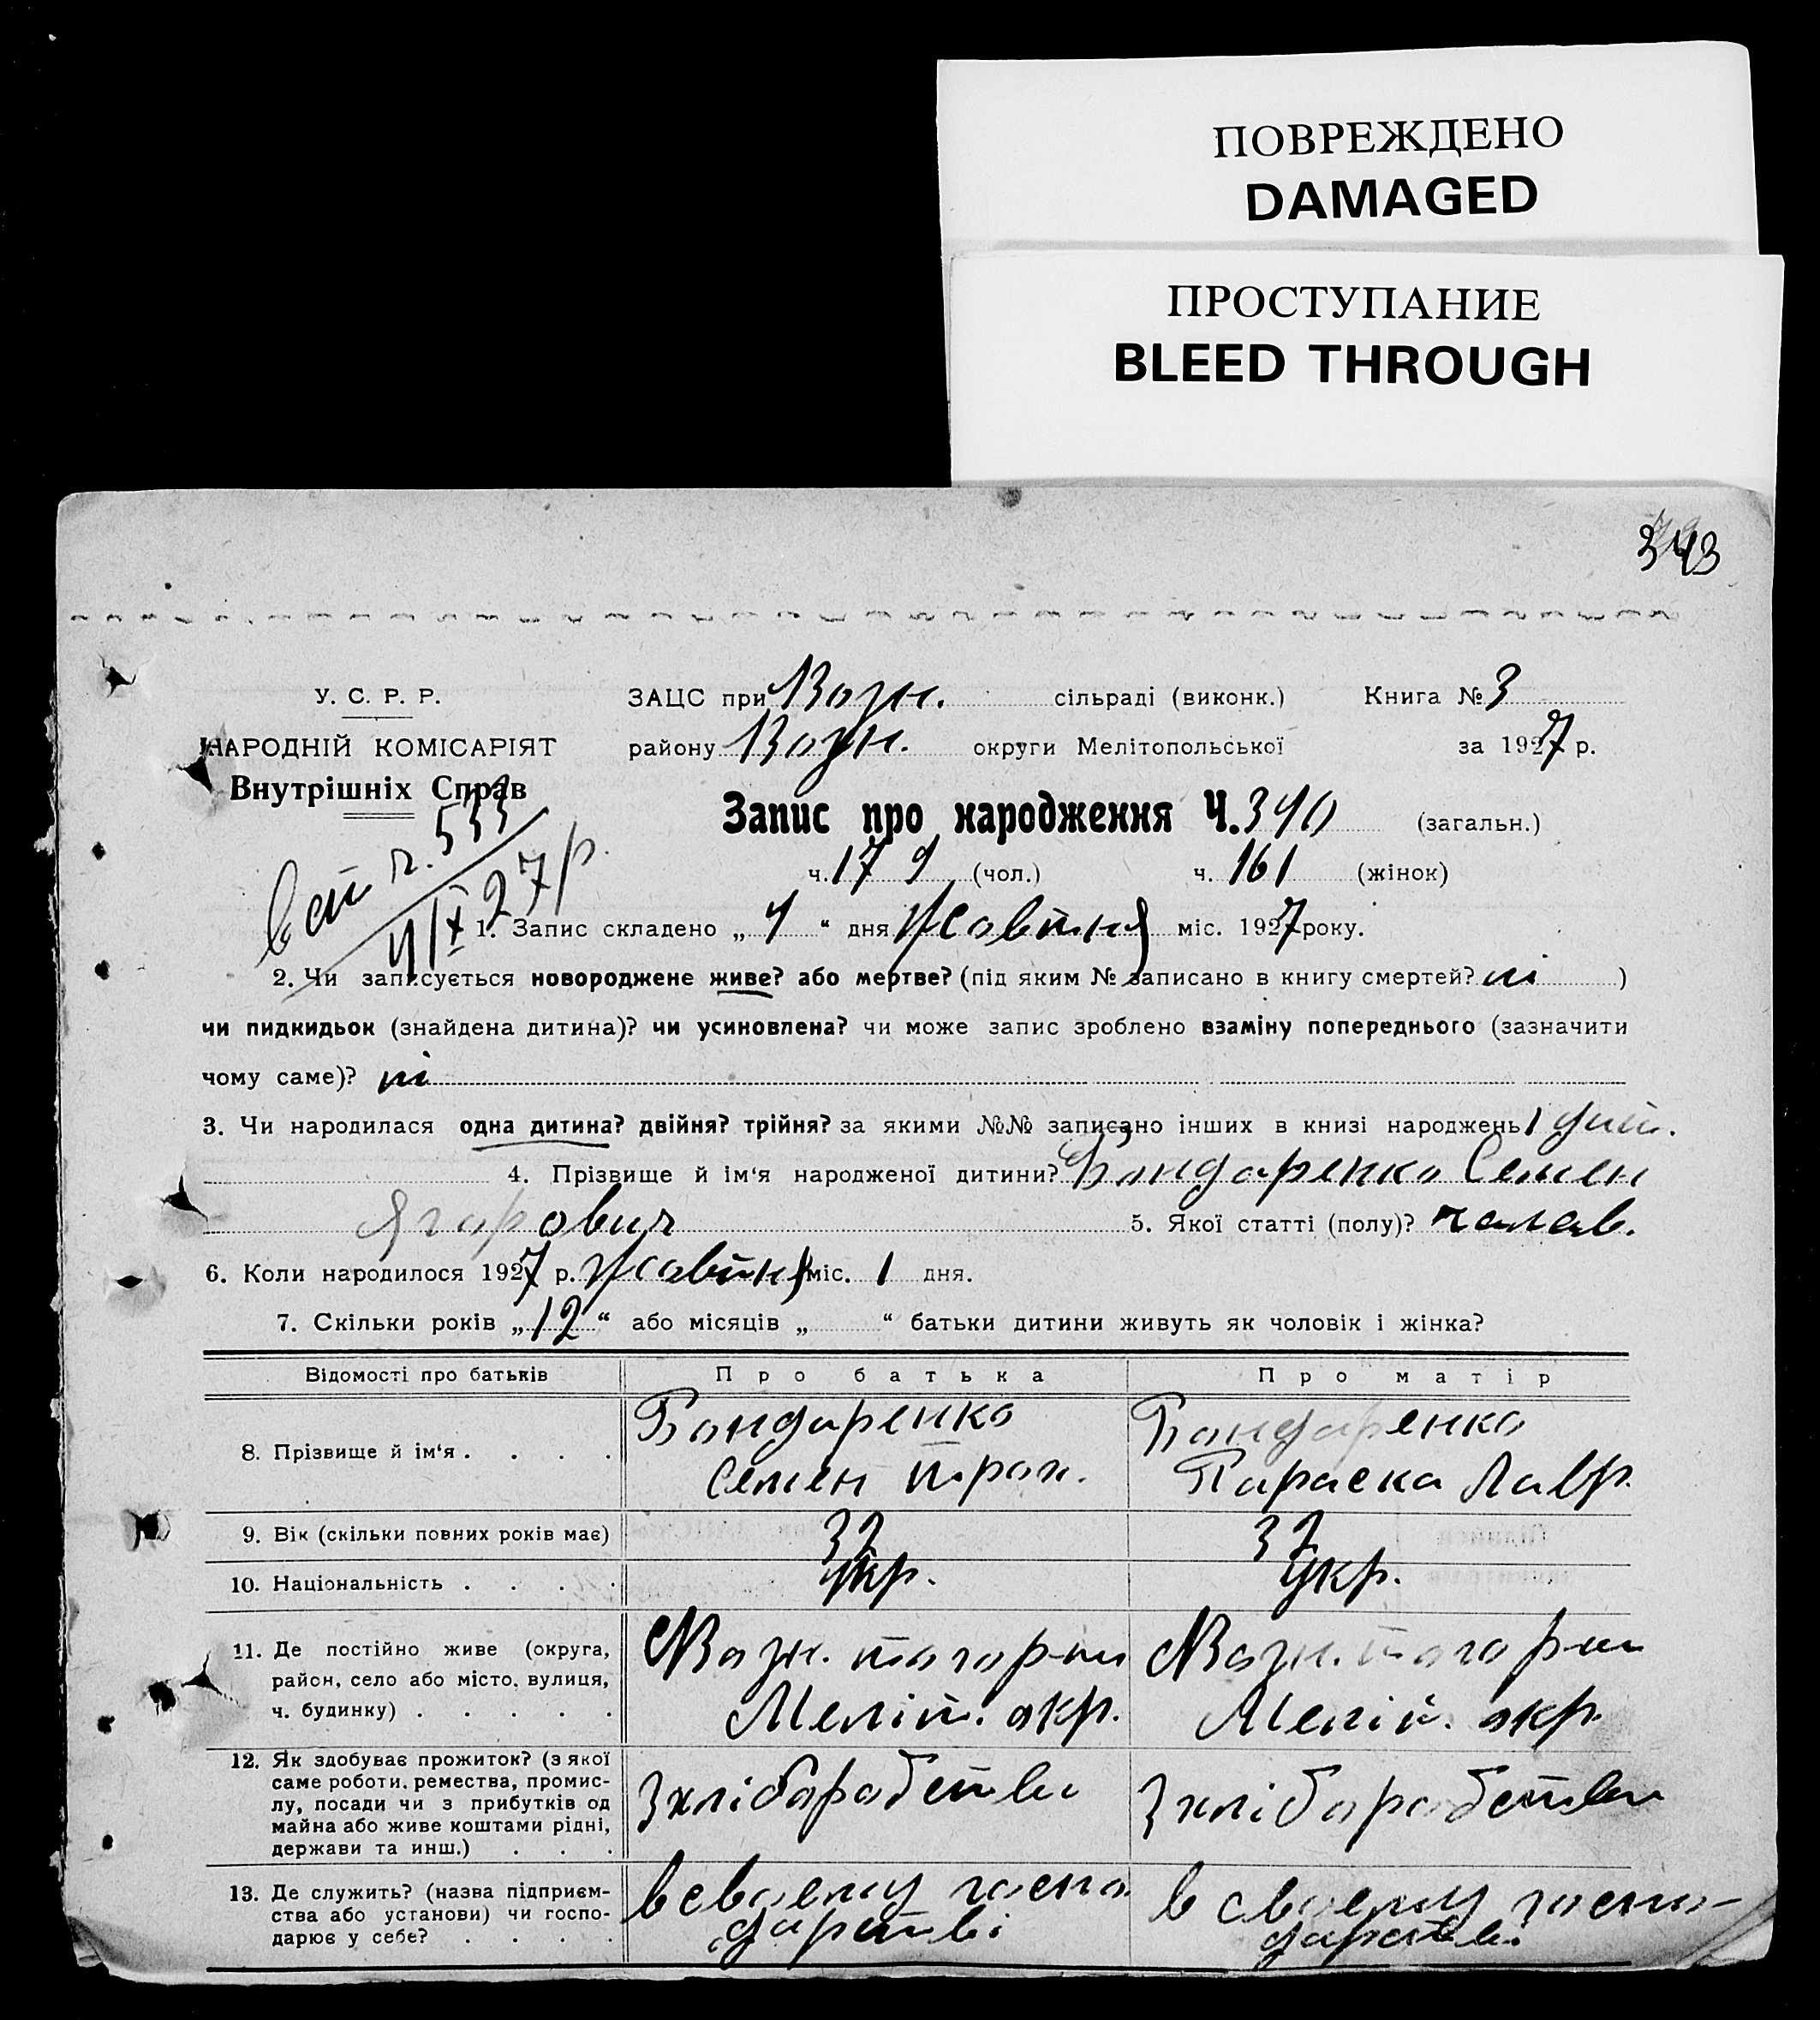 ПОВРЕЖДЕНО
DAMAGED
ПРОСТУПАНИЕ
BLEED THROUGH
343
У. С. Р. Р.
НАРОДНІЙ КОМІСАРІЯТ
Внутрішніх Справ
ЗАЦС при Возн. сільраді (виконк.) Книга № 3
району Возн. округи Мелітопольської за 1927 р.
Запис про народження Ч. 340 (загальн.)
ч. 179 (чол.) ч. 161 (жінок)
533
27 р.
1. Запис складено „4“ дня Жовтня міс. 1927 року.
2. Чи записується новороджене живе? або мертве? (під яким № записано в книгу смертей? ні )
чи пидкидьок (знайдена дитина)? чи усиновлена? чи може запис зроблено взаміну попереднього (зазначити
чому саме)? ні
3. Чи народилася одна дитина? двійня? трійня? за якими №№ записано інших в книзі народжень 1 дит.
4. Прізвище й ім‘я народженої дитини? Бондаренко Семен
Ягорович 5. Якої статті (полу)? чолов.
6. Коли народилось 1927 р. Жовтня міс. 1 дня.
7. Скільки років „12“ або місяців „ “ батьки дитини живуть як чоловік і жінка?
Відомості про батьків Про батька Про матір
8. Прізвище й ім‘я . . . . Бондаренко Бондаренко
Семен Параска Лавр.
9. Вік (скільки повних років має) 32 32
10. Національність . . . . Укр. Укр.
11. Де постійно живе (округа,
район, село або місто, вулиця,
ч. будинку) . . . . .
Возн. того р-ну Возн. того р-ну
Меліт. окр. Меліт. окр.
12. Як здобуває прожиток? (з якої
саме роботи, ремества, промис-
лу, посади чи з прибутків од
майна або живе коштами рідні,
держави та инш.) . . .
З хліборобства З хліборобства
13. Де служить? (назва підприєм-
ства або установи) чи госпо-
дарює у себе? . . . .
в своєму госпо- в своєму госпо-
дарстві дарстві